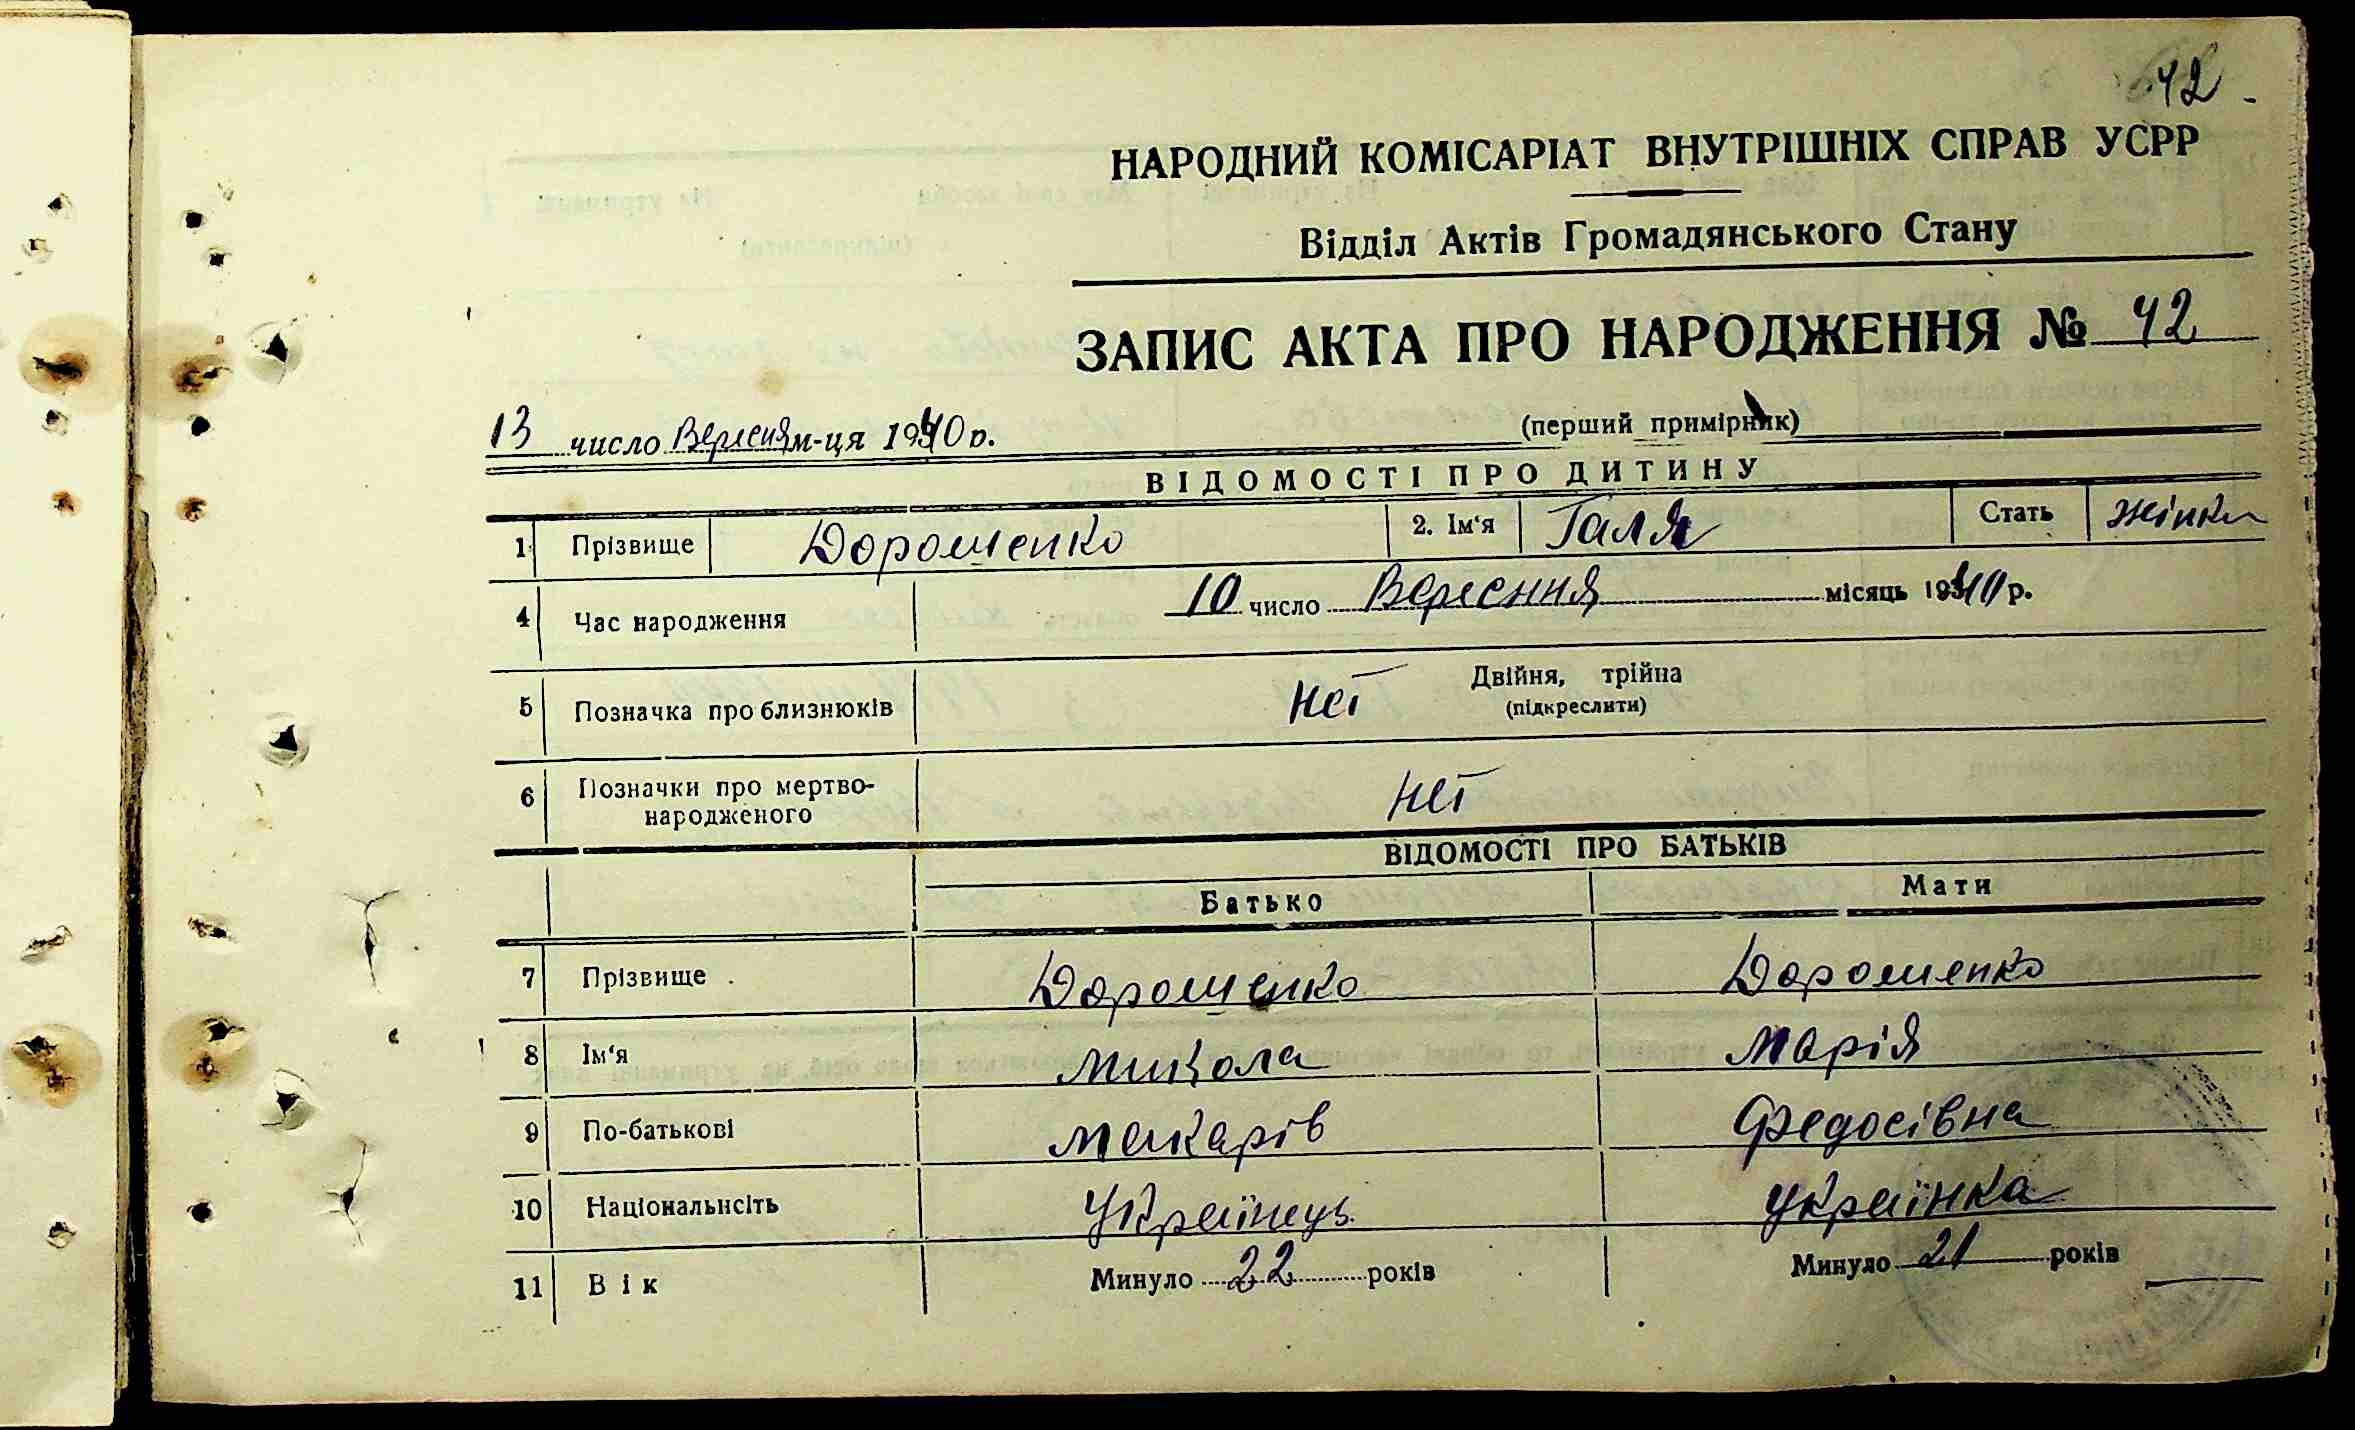 42
НАРОДНИЙ КОМІСАРІАТ ВНУТРІШНІХ СПРАВ УСРР
Відділ Актів Громадянського Стану
ЗАПИС АКТА ПРО НАРОДЖЕННЯ № 42
13 число Вересня м-ця 1940 р. (перший примірник)
ВІДОМОСТІ ПРО ДИТИНУ
1 Прізвище Дорошенко 2. Ім'я Галя Стать жінка
4 Час народження 10 число Вересння місяць 1940 р.
5 Позначка про близнюків неї Двійня, трійна
(підкреслити)
6 Позначки про мертво-
народженого неї
ВІДОМОСТІ ПРО БАТЬКІВ
Батько Мати
7 Прізвище Дорошенко Дорошенко
8 Ім'я Микола Марія
9 По-батькові Макарів Федосівна
10 Національнсіть Українець Українка
11 Вік Минуло 22 років Минуло 21 років